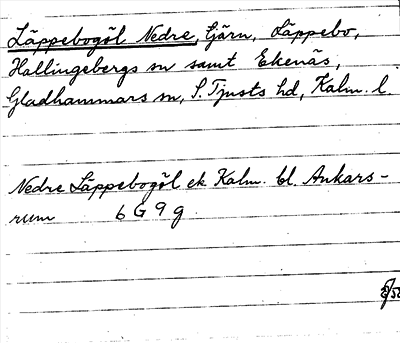 Läppebogöl Nedre, tjärn, Läppebo,
Hallingebergs sn samt Ekenäs,
Gladhammars sn, S. Tjusts hd, Kalm. l.
Nedre Läppebogöl ek. Kalm. bl. Ankars-
rum 6 G 9 g